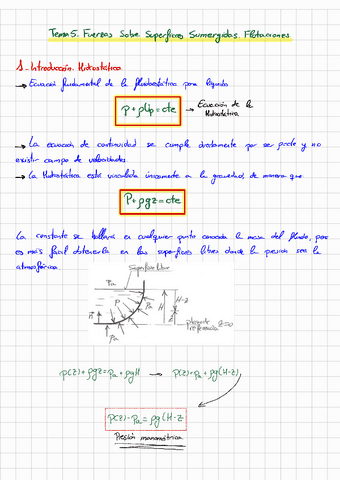 Tema 5. Fuerzas Sobre Superficies Sumergidas. Flotaciones
1. Introducción. Hidrostática
→ Ecuación fundamental de la fluidoestática para líquidos
P + ρUp = cte → Ecuación de la
Hidrostática
→ La ecuación de continuidad se cumple directamente por ser ρ=cte y no
existir campo de velocidades.
→ La Hidrostática está vinculada únicamente a la gravedad, de manera que
P + ρgz = cte
La constante se hallará en cualquier punto conocida la masa del fluido, pero
es más fácil obtenerla en las superficies libres donde la presión sea la
atmosférica.
Superficie libre
Pa
Pa
P
H
H-z
z
n
z=0
p(z) + ρgz = Pa + ρgH → p(z) = Pa + ρg(H-z)
p(z) - Pa = ρg(H-z
Presión manométrica